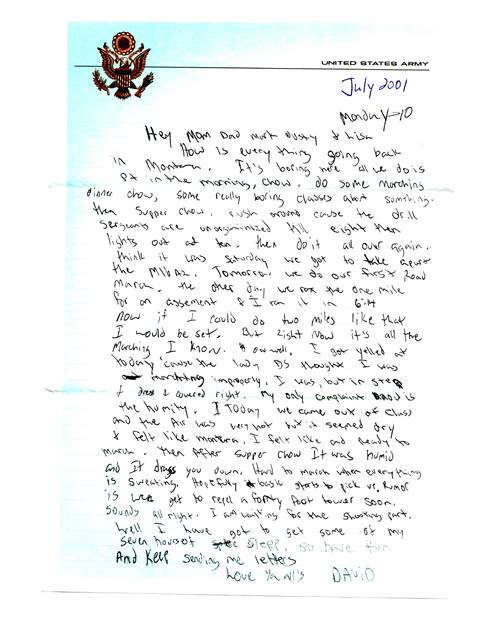 UNITED STATES ARMY
July 2001
Monday-10
Hey Mom Dad Mark Dusty & Lisa
How is everything going back
in Montana. It's boring here all we do is
PT in the morning, chow. do some marching
dinner chow, some really boring classes about something.
then supper chow. rush around cause the drill
sergeants are unorganized till eight then
lights out at ten. then do it all over again.
think it was Saturday we got to take apart
the M16A2. Tomorrow we do our first Road
March. the other day we run the one mile
for an assement & I ran it in 6:14
now if I could do two miles like that
I would be set. But Right Now it's all the
Marching I know. & oh well. I got yelled at
today 'cause the lady DS thought I was
marching improperly. I was, but in step
& dress & covered right. My only complaint is
the humity. Today we came out of class
and the Air was very hot but it seemed dry
& felt like montana. I felt like and Ready to
march. then After supper chow It was humid
and It drags you down. Hard to march when everything
is sweating. Hopefully basic starts to pick up. Rumor
is we get to repel a forty foot tower soon.
sounds all right. I am waiting for the shooting part.
Well I have got to get some of my
seven hours of sleep. so have fun
And Keep sending me letters
Love Ya DAVID